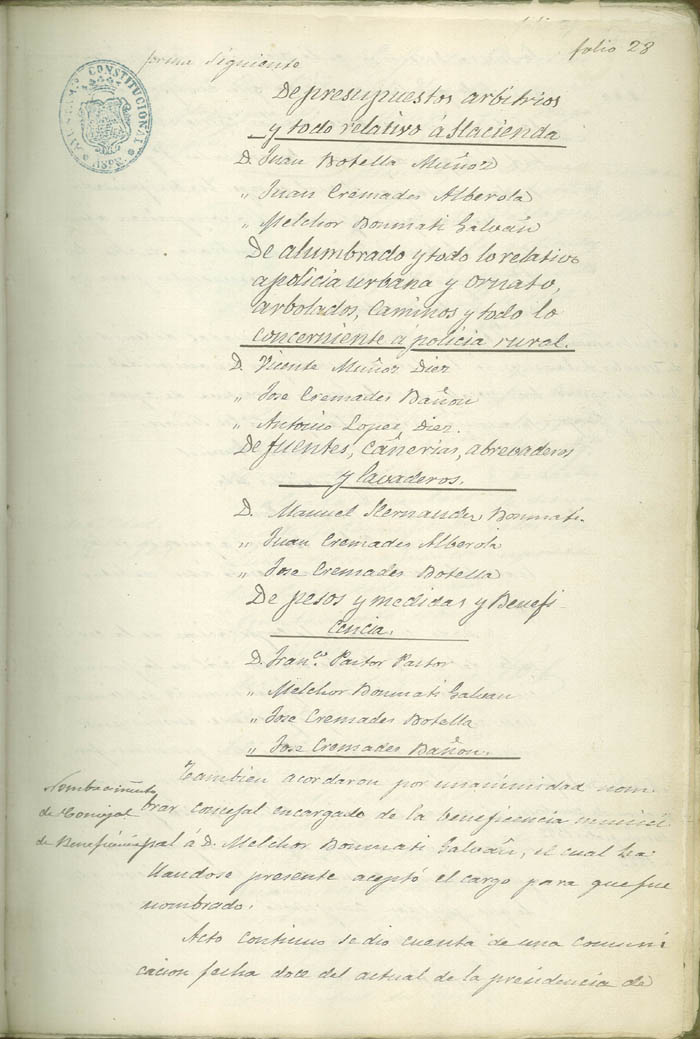 folio 28
forma siguiente
AYUNTAMIENTO CONSTITUCIONAL
ASPE
De presupuestos arbitrios
y todo relativo á Hacienda
D. Juan Botella Muñoz
„ Juan Cremades Alberola
„ Melchor Bonmati Galván
De alumbrado y todo lo relativo
a policia urbana y ornato,
arbolados, caminos y todo lo
concerniente á policia rural.
D. Vicente Muñoz Diez
„ Jose Cremades Bañon
„ Antonio Lopez Diez.
De fuentes, cañerias, abrevaderos
y lavaderos.
D. Manuel Hernandez Bonmati.
„ Juan Cremades Alberola
„ Jose Cremades Botella
De pesos y medidas y Benefi-
cencia.
D. Fran.co Pastor Pastor
„ Melchor Bonmati Galvan
„ Jose Cremades Botella
„ Jose Cremades Bañon.
Nombramiento
de Concejal
de Beneficencia
Tambien acordaron por unanimidad nom
brar concejal encargado de la beneficencia munici
pal á D. Melchor Bonmati Galván, el cual ha
llandose presente aceptó el cargo para que fue
nombrado.
Acto continuo se dio cuenta de una comuni
cacion fecha doce del actual de la presidencia de